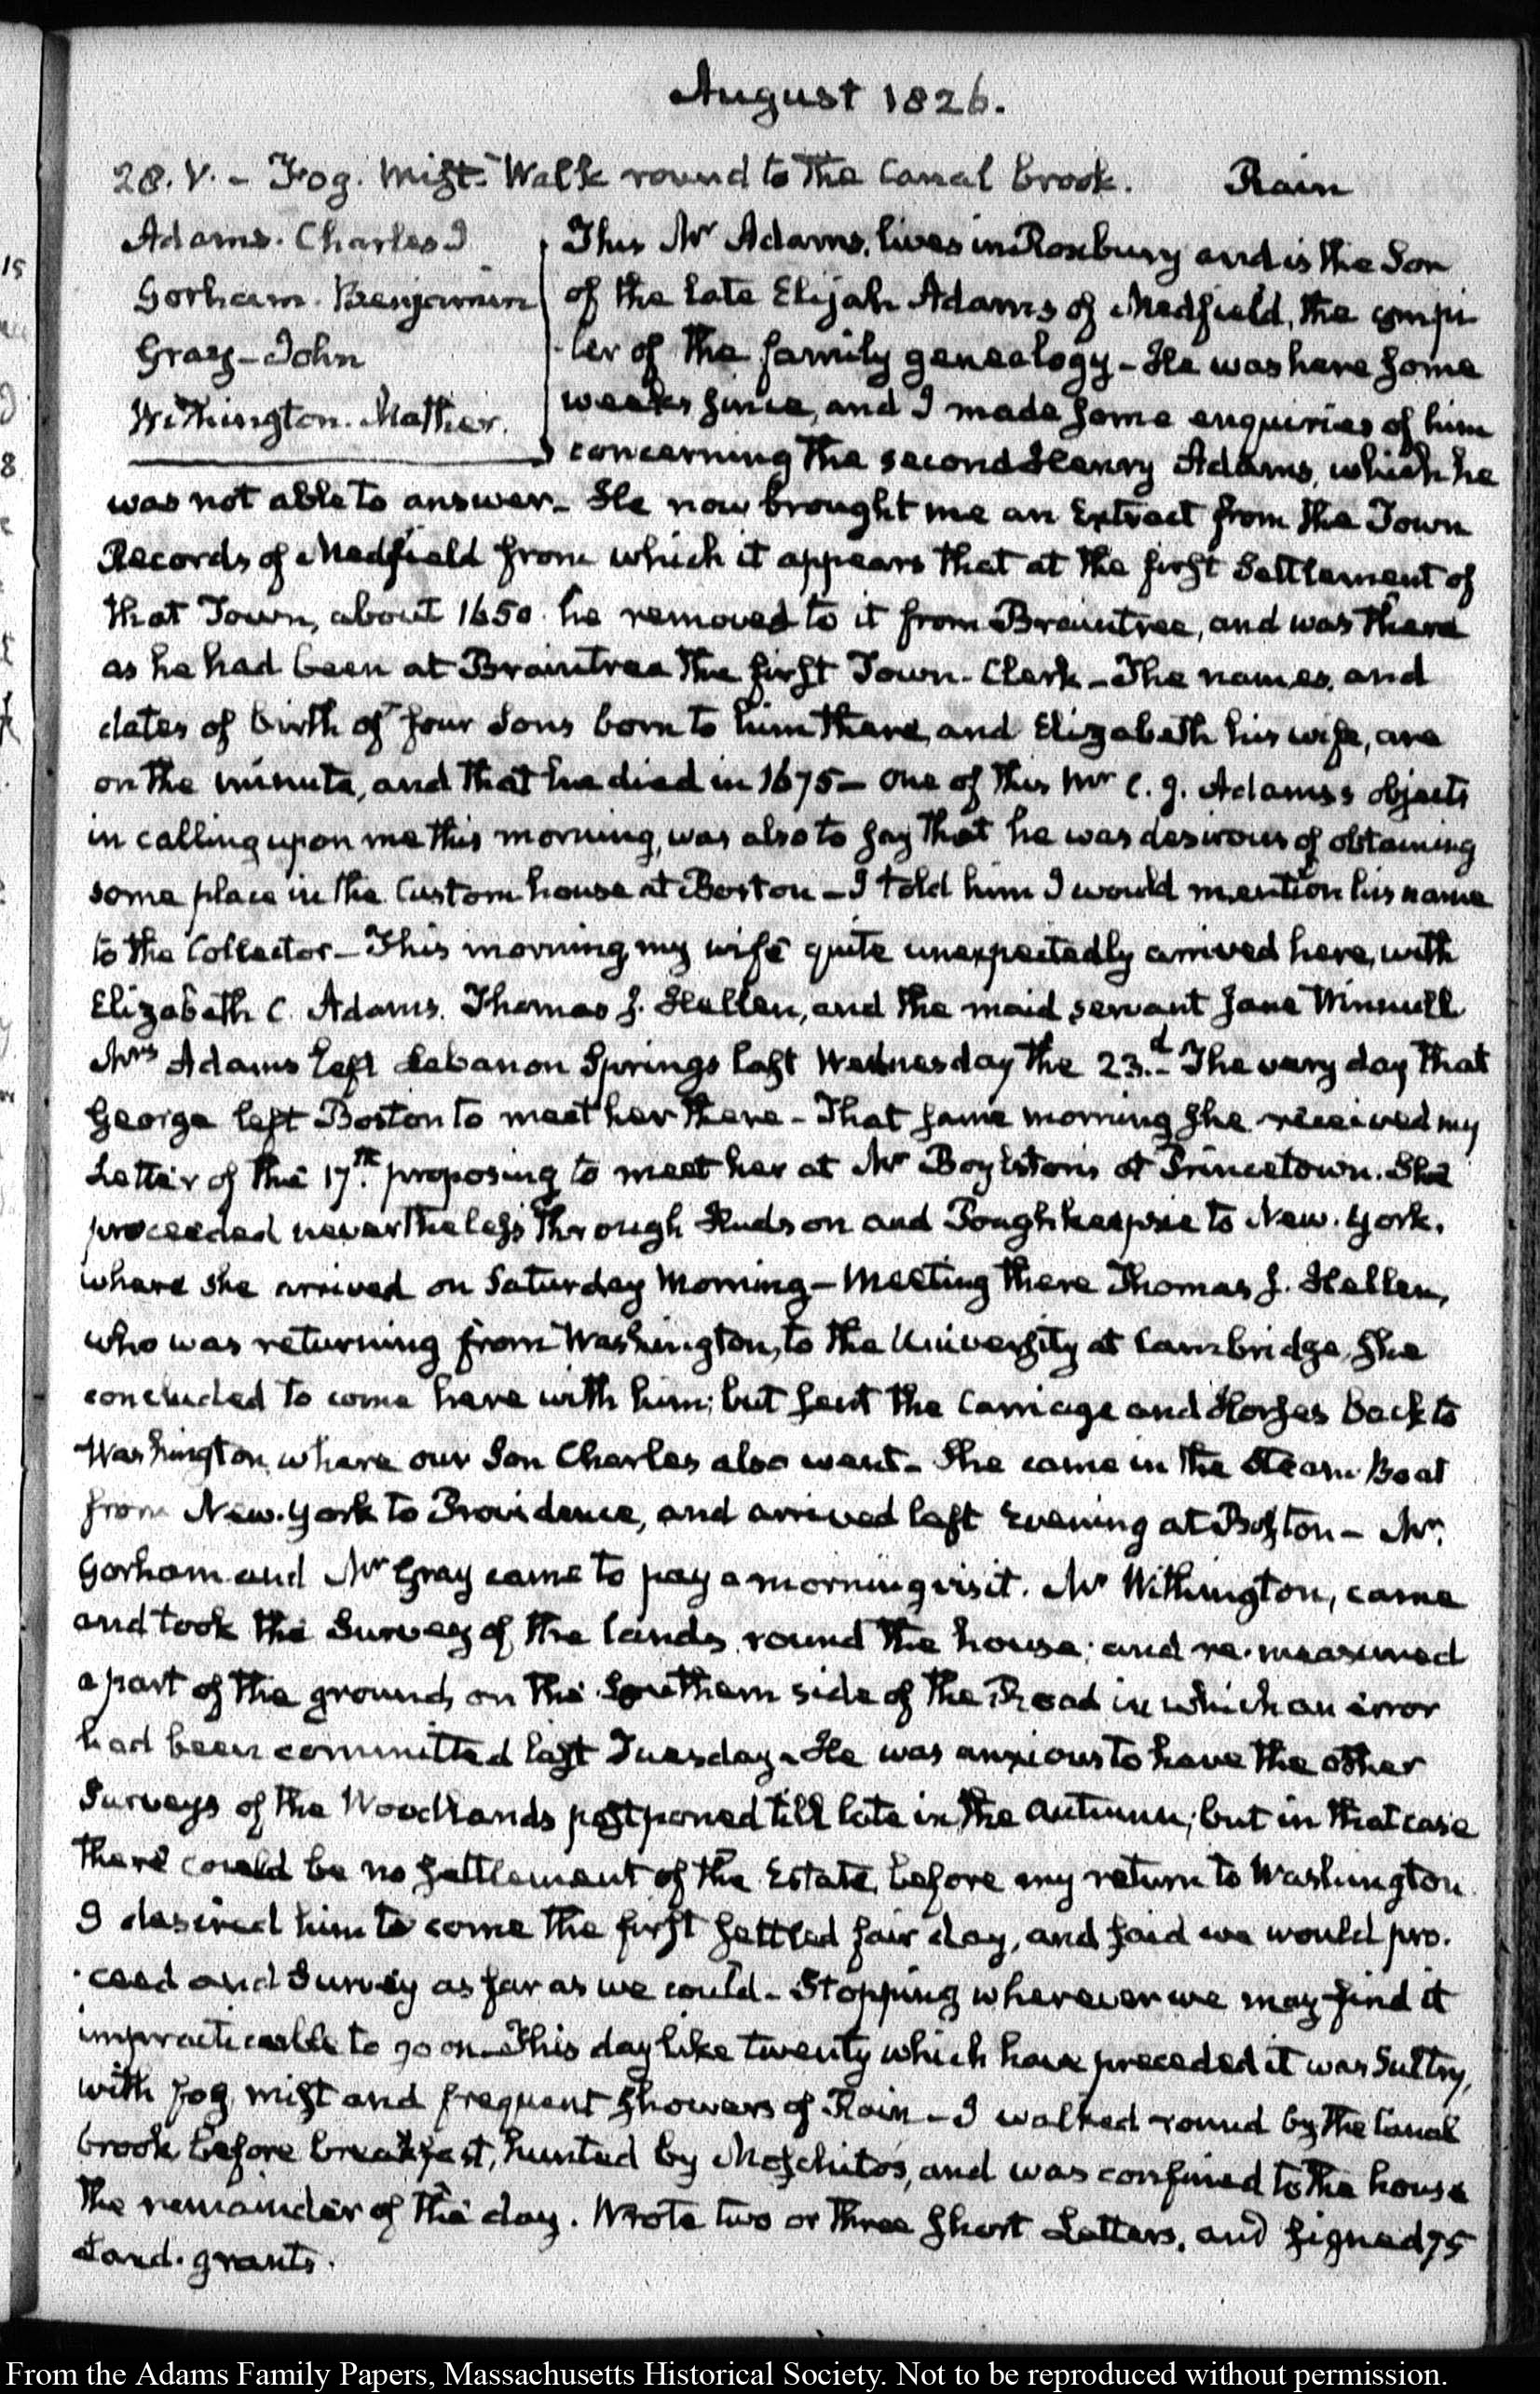 August 1826.
28. V. - Fog. Mist. Walk round to the Canal brook. Rain
Adams. Charles J
Gorham. Benjamin
Gray - John
Withington. Mather.
This Mr Adams, lives in Roxbury and is the Son
of the late Elijah Adams of Medfield, the compi
-ler of the family genealogy - He was here some
weeks since, and I made some enquiries of him
concerning the second Henry Adams, which he
was not able to answer - He now brought me an Extract from the Town
Records of Medfield from which it appears that at the first Settlement of
that Town, about 1650. he removed to it from Braintree, and was there
as he had been at Braintree the first Town-Clerk - The names, and
dates of birth of four Sons born to him there, and Elizabeth his wife, are
on the minute, and that he died in 1675 - One of this Mr C. J. Adams's objects
in calling upon me this morning, was also to say that he was desirous of obtaining
some place in the Custom house at Boston - I told him I would mention his name
to the Collector - This morning, my wife quite unexpectedly arrived here, with
Elizabeth C. Adams. Thomas J. Hellen, and the maid servant Jane Winnull
Mrs Adams left Lebanon Springs last Wednesday the 23.d The very day that
George left Boston to meet her there - That same morning she received my
Letter of the 17.th proposing to meet her at Mr Boylston's at Princetown. She
proceeded nevertheless through Hudson and Poughkeepsie to New-York,
where she arrived on Saturday Morning - Meeting there Thomas J. Hellen,
who was returning from Washington, to the University at Cambridge, she
concluded to come here with him; but sent the Carriage and Horses back to
Washington, where our Son Charles also went - She came in the Steam-Boat
from New-York to Providence, and arrived last Evening at Boston - Mr.
Gorham and Mr Gray came to pay a morning visit. Mr Withington, came
and took the Survey of the lands round the house; and re-measured
a part of the ground, on the Southern side of the Road in which an error
had been committed last Tuesday - He was anxious to have the other
Surveys of the Woodlands postponed till late in the autumn; but in that case
there could be no settlement of the Estate, before my return to Washington
I desired him to come the first settled fair day, and said we would pro-
-ceed and Survey as far as we could - Stopping wherever we may find it
impracticable to go on - This day like twenty which have preceded it was Sultry,
with fog, mist and frequent showers of Rain - I walked round by the Canal
brook, before breakfast, hunted by Moschitos, and was confined to the house
the remainder of the day. Wrote two or three short Letters, and signed 75
Land-grants.
From the Adams Family Papers, Massachusetts Historical Society. Not to be reproduced without permission.